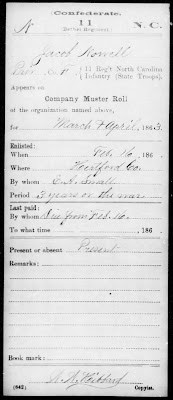 Confederate.
N 11 N. C.
(Bethel Regiment.)
Jacob Nowell
Pvt, Co. 11 Reg't North Carolina
Infantry (State Troops).
Appears on
Company Muster Roll
of the organization named above,
for March & April, 1863.
Enlisted:
When Feb. 16, 186
Where Hertford Co.
By whom Small
Period 3 years or the war
Last paid:
By whom Due from Feb. 16.
To what time , 186
Present or absent Present
Remarks:
Book mark:
(642) Copyist.